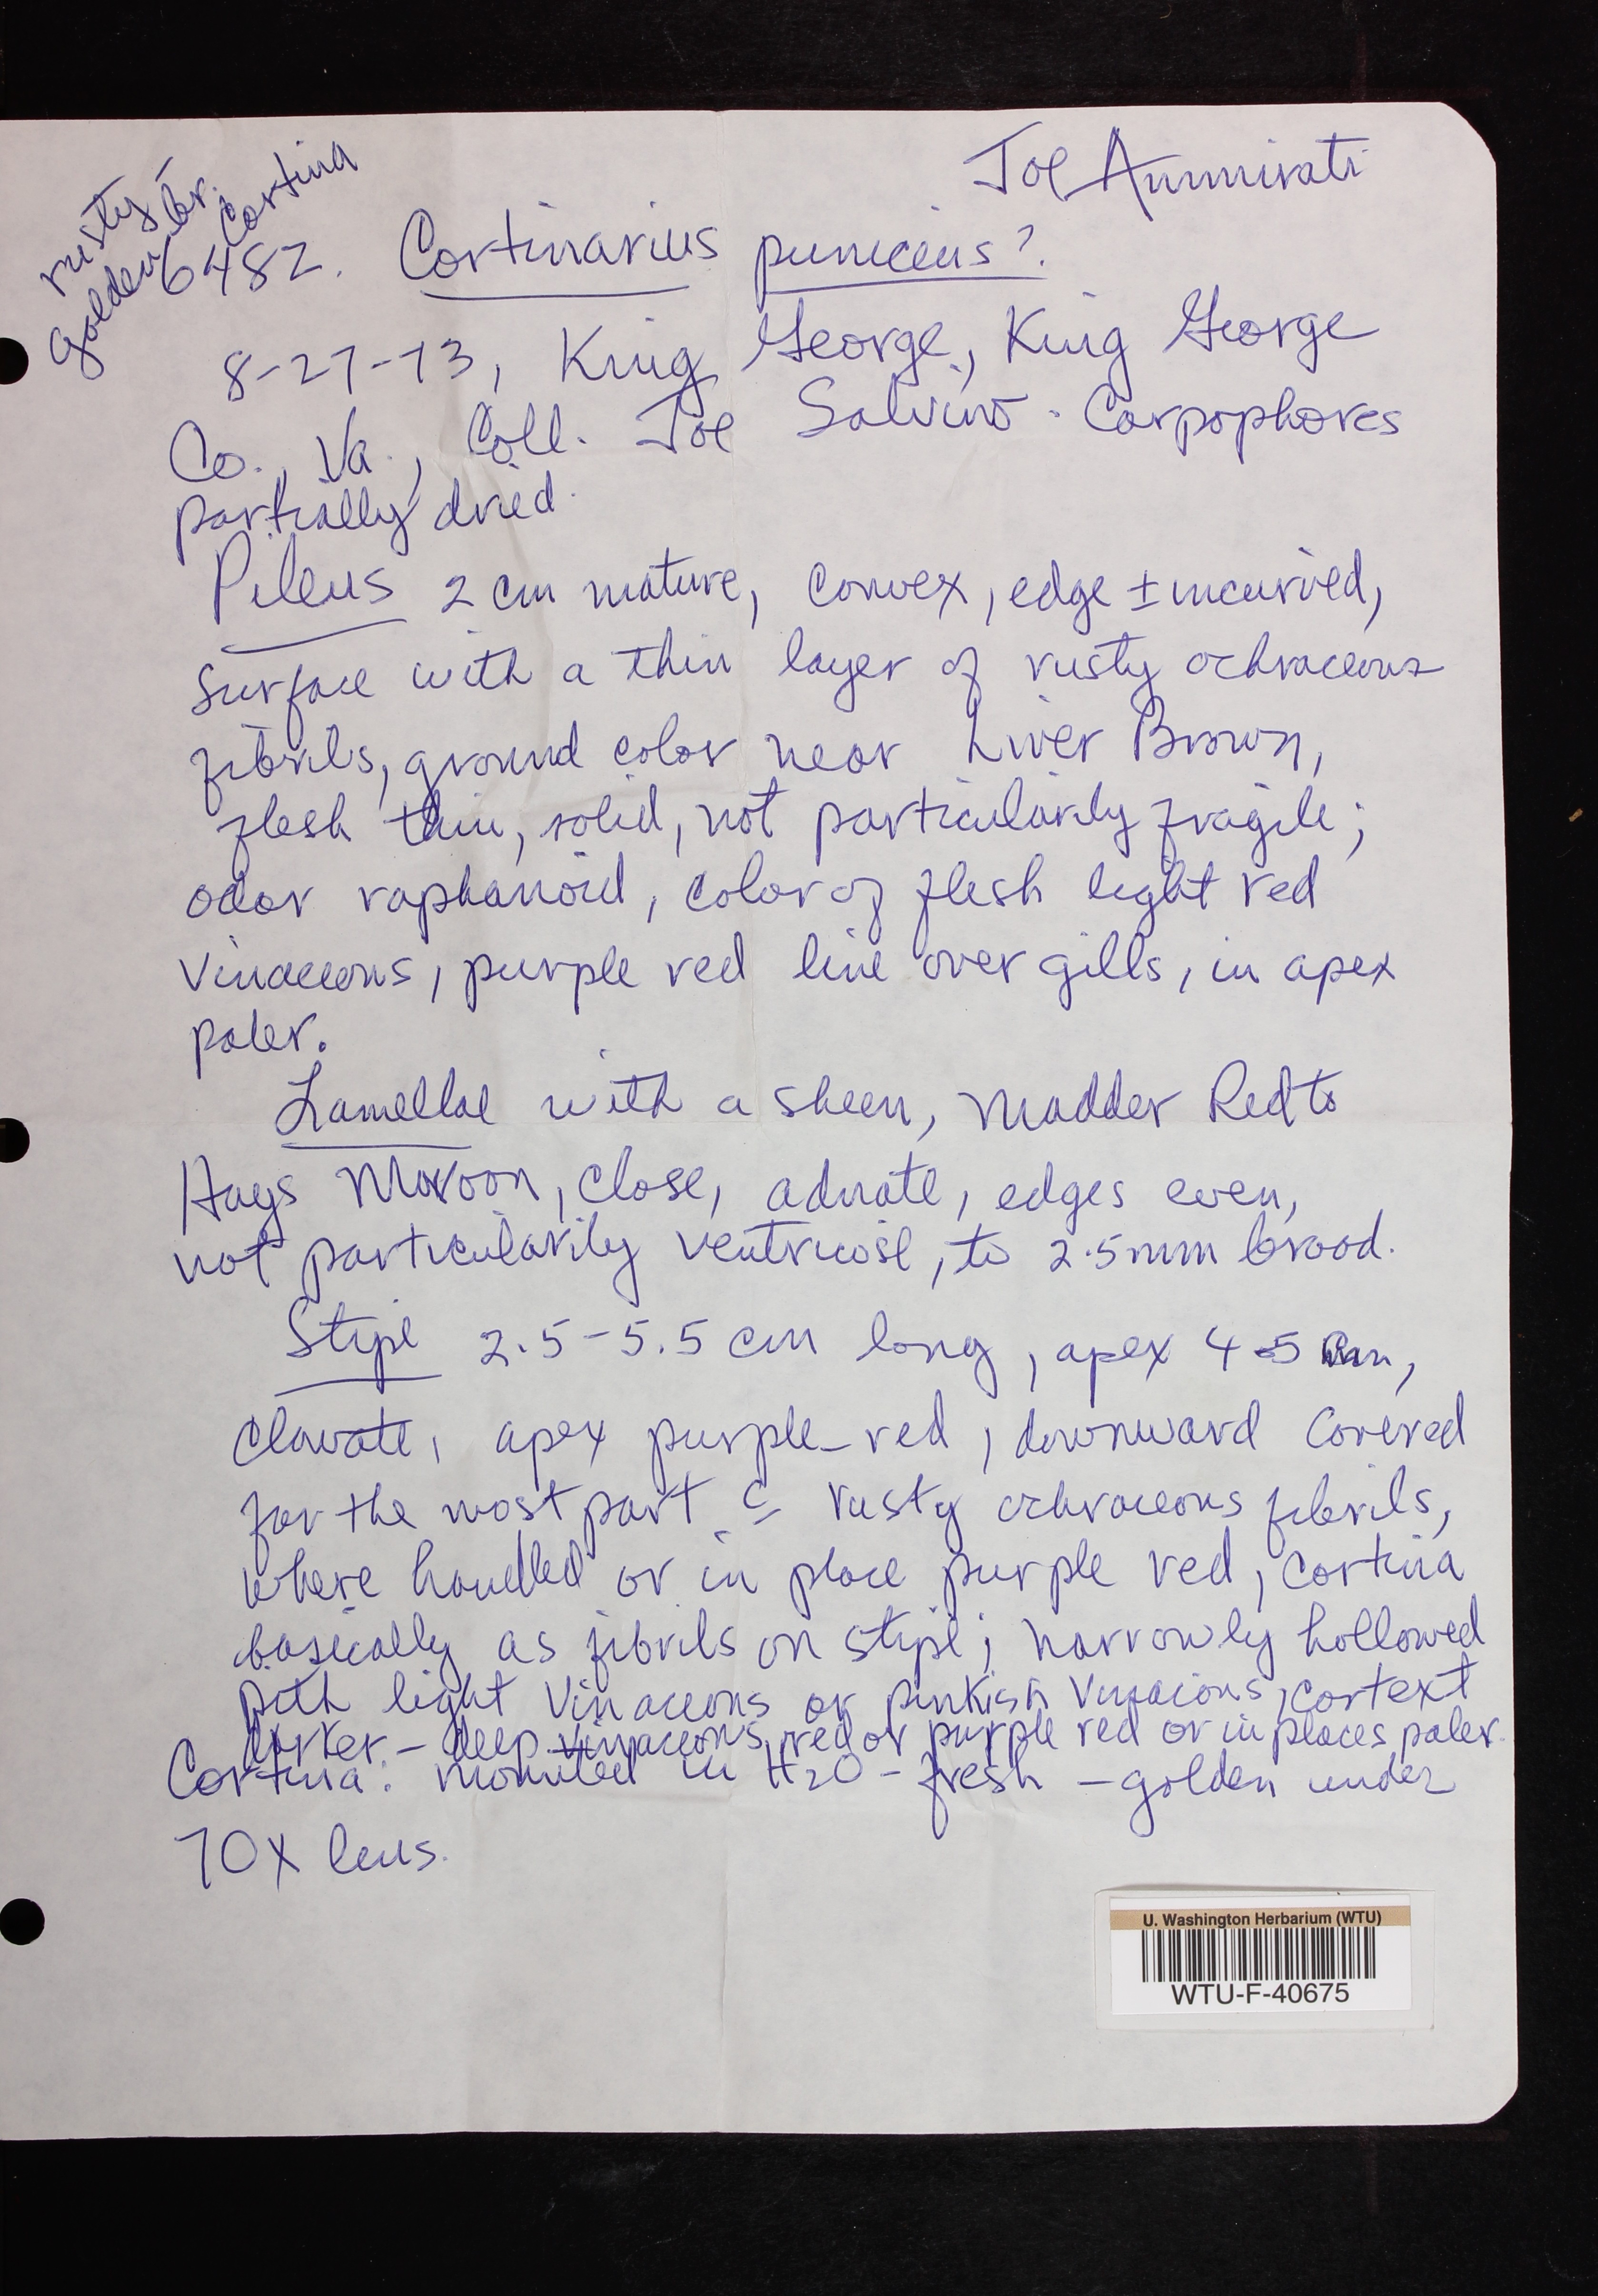 Joe Ammirati
rusty -
golden br.
cortina
6482. Cortinarius puniceus?
8-27-73, King George, King George
Co., Va., Coll. Joe Salvino. Carpophores
partially dried.
Pileus 2 cm mature, convex, edge ± incurved,
surface with a thin layer of rusty ochraceous
fibrils, ground color near Liver Brown,
flesh thin, solid, not particularily fragile;
odor raphanoid, color of flesh light red
vinaceous, purple red line over gills, in apex
paler.
Lamellae with a sheen, Madder Red to
Hays Maroon, close, adnate, edges even,
not particularily ventricose, to 2.5mm broad.
Stipe 2.5-5.5 cm long, apex 4-5 mm,
clavate, apex purple-red, downward covered
for the most part c̄ rusty ochraceous fibrils,
where handled or in place purple red, cortina
basically as fibrils on stipe; narrowly hollowed
pith light vinaceous or pinkish vinacious, cortext
darker - deep vinaceous red or purple red or in places paler.
Cortina: mounted in H2O - fresh - golden under
70X lens.
U. Washington Herbarium (WTU)
WTU-F-40675